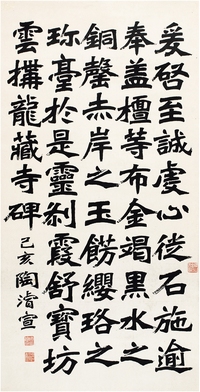 爰啓至誠虔心徙石施逾
奉盖檀等布金竭黑水之
銅罄赤岸之玉餝纓珞之
珎臺於是靈刹霞舒寶坊
雲搆龍藏寺碑
己亥陶濬宣